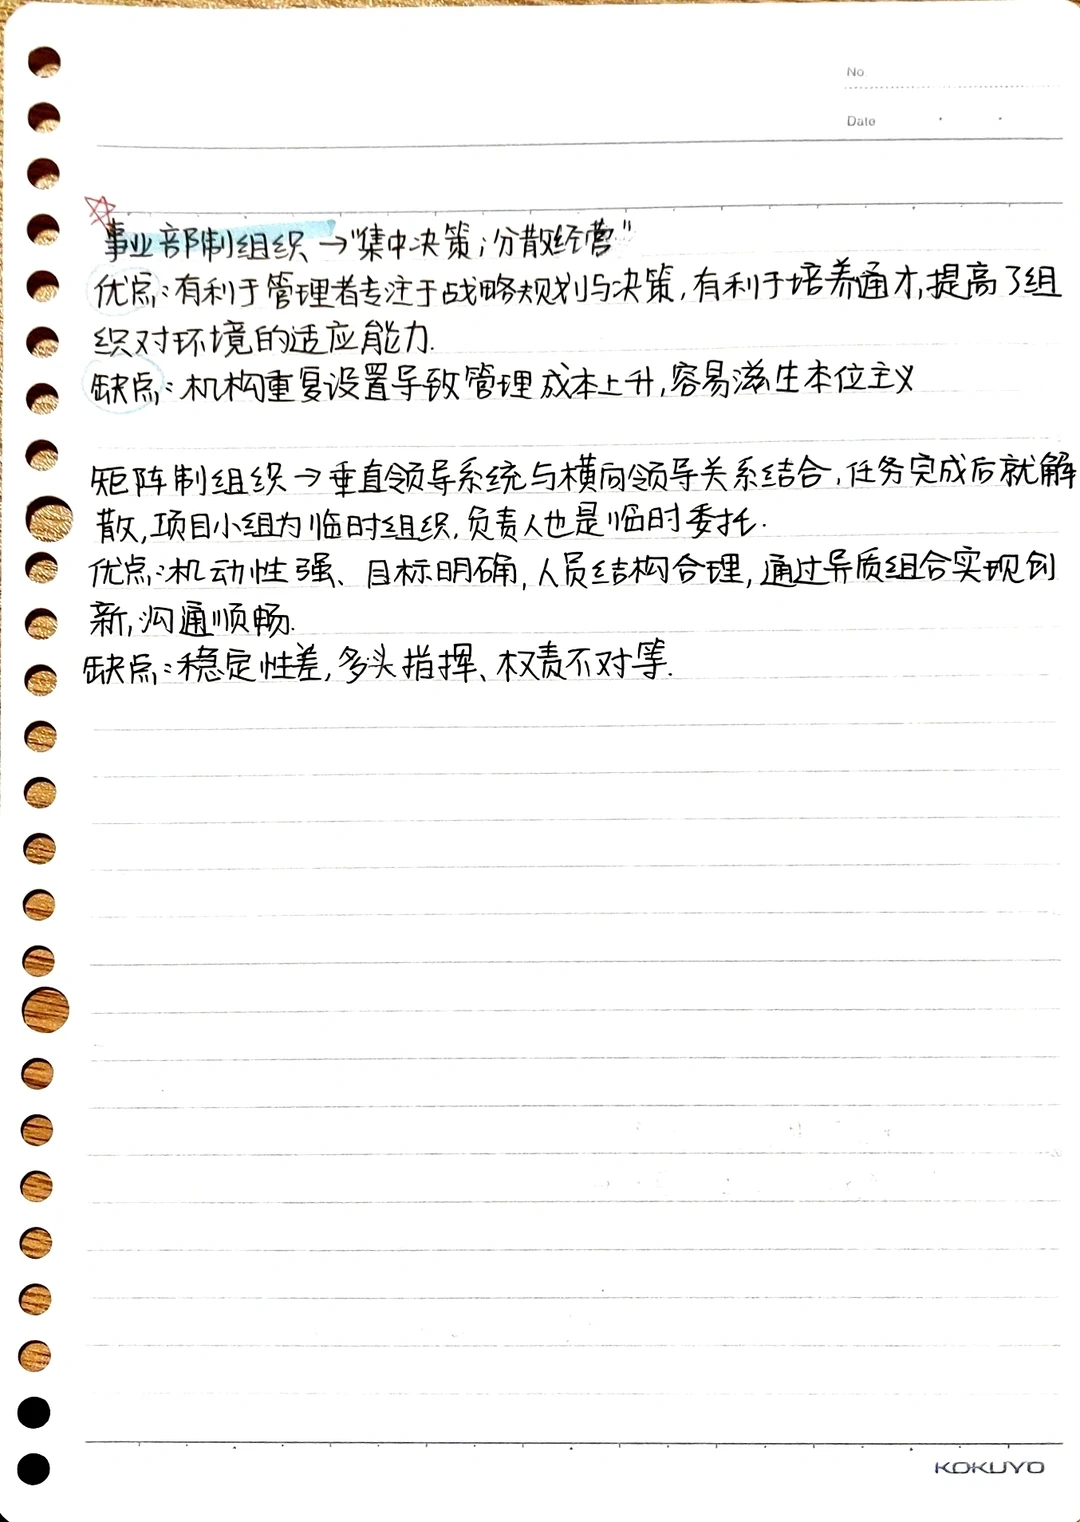 No
Date
事业部制组织→"集中决策;分散经营"
优点:有利于管理者专注于战略规划与决策,有利于培养通才,提高了组
织对环境的适应能力.
缺点:机构重复设置导致管理成本上升,容易滋生本位主义
矩阵制组织→垂直领导系统与横向领导关系结合,任务完成后就解
散,项目小组为临时组织,负责人也是临时委托.
优点:机动性强、目标明确,人员结构合理,通过异质组合实现创
新,沟通顺畅.
缺点:稳定性差,多头指挥、权责不对等.
KOKUYO